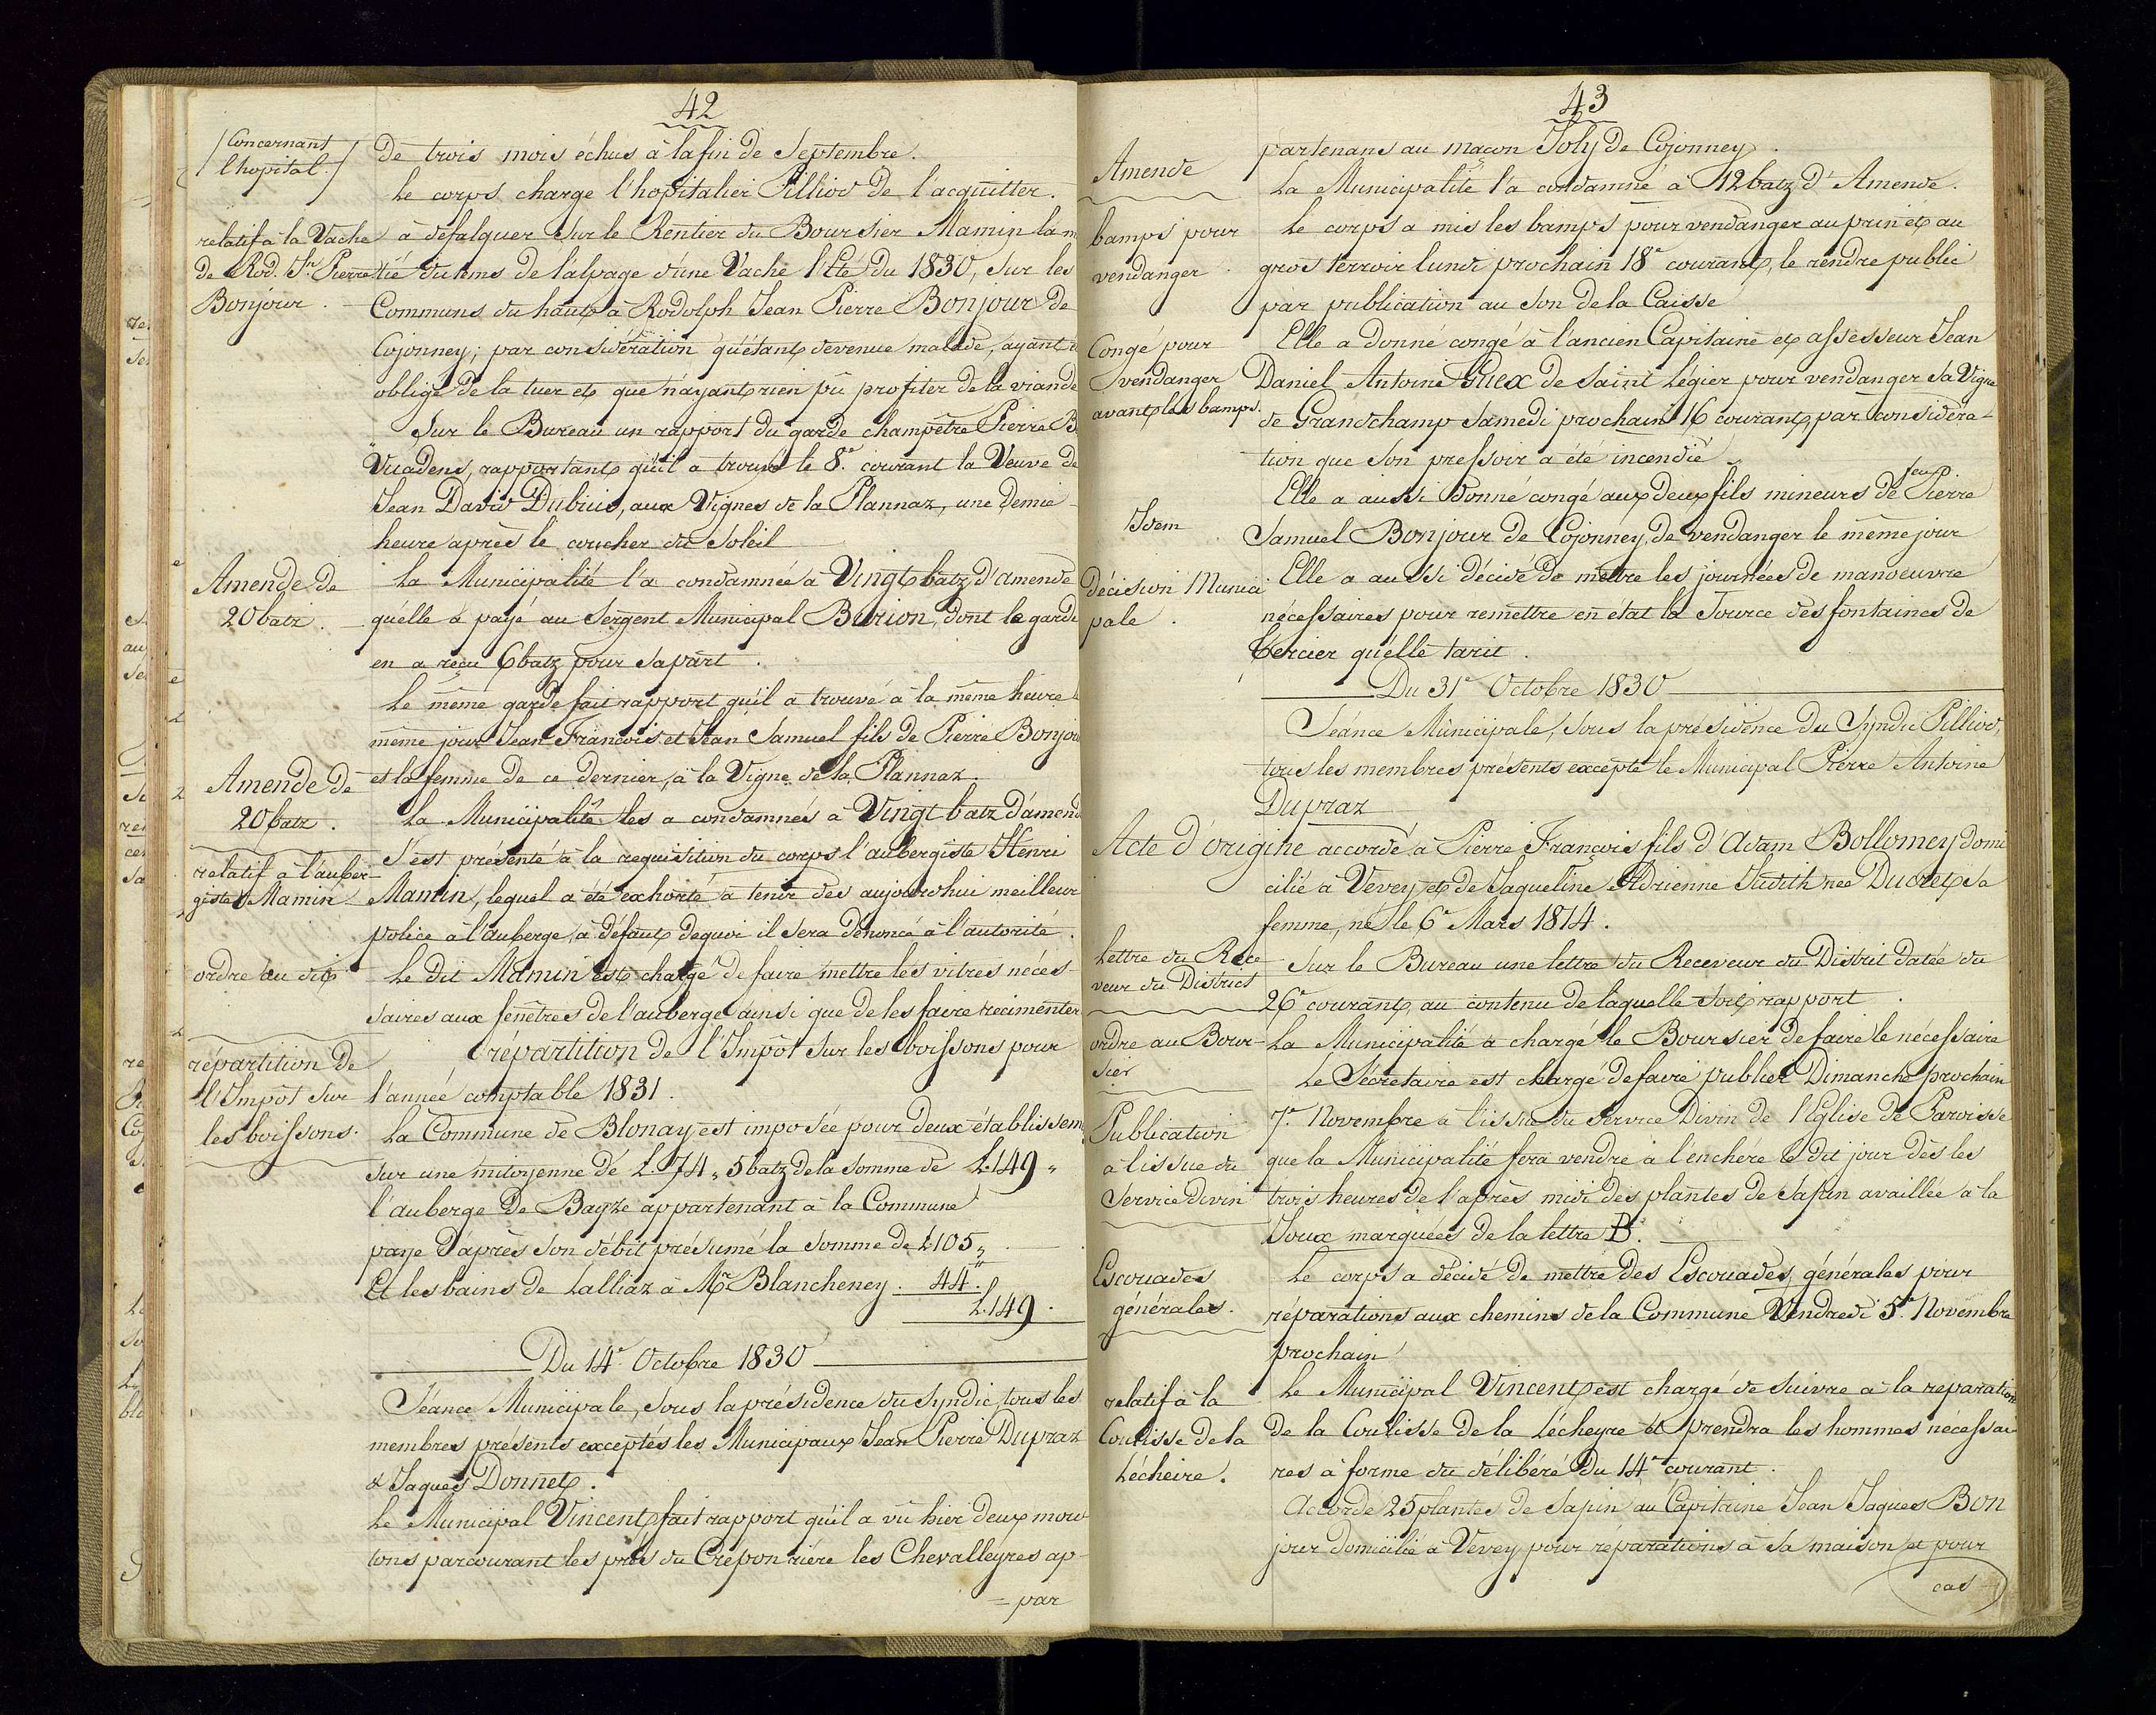 42
/ Concernant
l'hopital. /
De trois mois échus à la fin de Septembre.
Le corps charge l'hopitalier Pilliod de l'acquitter.
relatif à la Vache
de Rod. Jn Pierre
Bonjour.
à défalquer sur le Rentier du Boursier Mamin la m
tié du tems de l'alpage d'une Vache l'Eté du 1830, sur les
Communs du haut à Rodolph Jean Pierre Bonjour de
Cojonney; par considération qu'étant devenue malade, ayant é
obligé de la tuer et que n'ayant rien pû profiter de la viande
Sur le Bureau un rapport du garde champêtre Pierre B
Vuadens, rapportant qu'il a trouvé le 8e. courant la Veuve de
Jean David Dubuis, aux Vignes de la Plannaz, une demie
heure après le coucher du Soleil
Amende de
20 batz.
La Municipalité l'a condamnée à Vingt batz d'amende
qu'elle a payé au Sergent Municipal Burion, dont le garde
en a reçu 6 batz pour sa part.
Le même garde fait rapport qu'il a trouvé à la même heure
même jour Jean François et Jean Samuel fils de Pierre Bonjou
et la femme de ce dernier, à la Vigne de la Plannaz.
Amende de
20 batz.
La Municipalité les a condamnés à Vingt batz d'amend
relatif à l'auber-
giste Mamin
S'est présenté à la requisition du corps l'aubergiste Henri
Mamin, lequel a été exhorté à tenir des aujourd'hui meilleur
police à l'auberge, à défaut dequoi il sera dénoncé à l'autorité.
ordre au dit
Le dit Mamin est chargé de faire mettre les vitres néces-
saires aux fenêtres de l'auberge ainsi que de les faire recimenter
répartition de
l'Impôt sur
les boissons.
répartition de l'Impôt sur les boissons pour
l'année comptable 1831.
La Commune de Blonay est imposée pour deux établissem
sur une mitoyenne de L. 74 „ 5 batz de la somme de L. 149 „
l'auberge de Bayze appartenant à la Commune
paye d'après son débit présumé la somme de L 105 „
Et les bains de Lalliaz à Mr Blancheney. 44 „
L. 149.
Du 14e. Octobre 1830
Séance Municipale, sous la présidence du Syndic, tous les
membres présents exceptés les Municipaux Jean Pierre Dupraz
& Jaques Donnet.
Le Municipal Vincent fait rapport qu'il a vû hier deux mou
tons parcourant les prés du Crépon rière les Chevalleyres ap-
= par
43
partenans au maçon Joly de Cojonney.
Amende
La Municipalité l'a condamné à 12 batz d'Amende.
bamps pour
vendanger.
Le corps a mis les bamps pour vendanger au prin et au
gros terroir lundi prochain 18e courant, le rendre public
par publication au son de la Caisse
Congé pour
vendanger
avant les bamps.
Elle a donné congé à l'ancien Capitaine et assesseur Jean
Daniel Antoine Guex de Saint Légier pour vendanger sa Vigne
de Grandchamp Samedi prochain 16 courant, par considéra-
tion que son pressoir a été incendié
Idem
Elle a aussi donné congé aux deux fils mineurs de feu Pierre
Samuel Bonjour de Cojonney, de vendanger le même jour
Décision Munici
pale.
Elle a aussi décidé de mettre les journées de manoeuvre
nécessaires pour remettre en état la Source des fontaines de
Tercier qu'elle tarit.
Du 31e Octobre 1830
Séance Municipale, sous la présidence du Syndic Pilliod,
tous les membres présents excepté le Municipal Pierre Antoine
Dupraz
Acte d'origine accordé à Pierre François fils d'Adam Bollomey domi
cilié à Vevey, et de Jaqueline Adrienne Judith née Ducret sa
femme, né le 6e Mars 1814.
Lettre du Rece
veur du District
Sur le Bureau une lettre du Receveur du District datée du
26e courant, au contenu de laquelle soit rapport.
ordre au Bour-
sier
La Municipalité a chargé le Boursier de faire le nécessaire
Publication
à l'issue du
Service divin
Le Sécretaire est chargé de faire publier Dimanche prochain
7e. Novembre à l'issue du Service Divin de l'Eglise de Paroisse
que la Municipalité fera vendre à l'enchére le dit jour dès les
trois heures de l'après midi des plantes de Sapin availlée à la
Joux marquées de la lettre B.
Escouades
générales.
Le corps a décidé de mettre des Escouades générales pour
réparations aux chemins de la Commune Vendredi 5e. Novembre
prochain
relatif à la
Coulisse de la
Lécheire.
Le Municipal Vincent est chargé de suivre à la reparation
de la Coulisse de la Lécheyre et prendra les hommes nécessai
res à forme du délibéré du 14e courant.
Accordé 25 plantes de Sapin au Capitaine Jean Jaques Bon
jour domicilié à Vevey pour réparations à sa maison et pour
cas